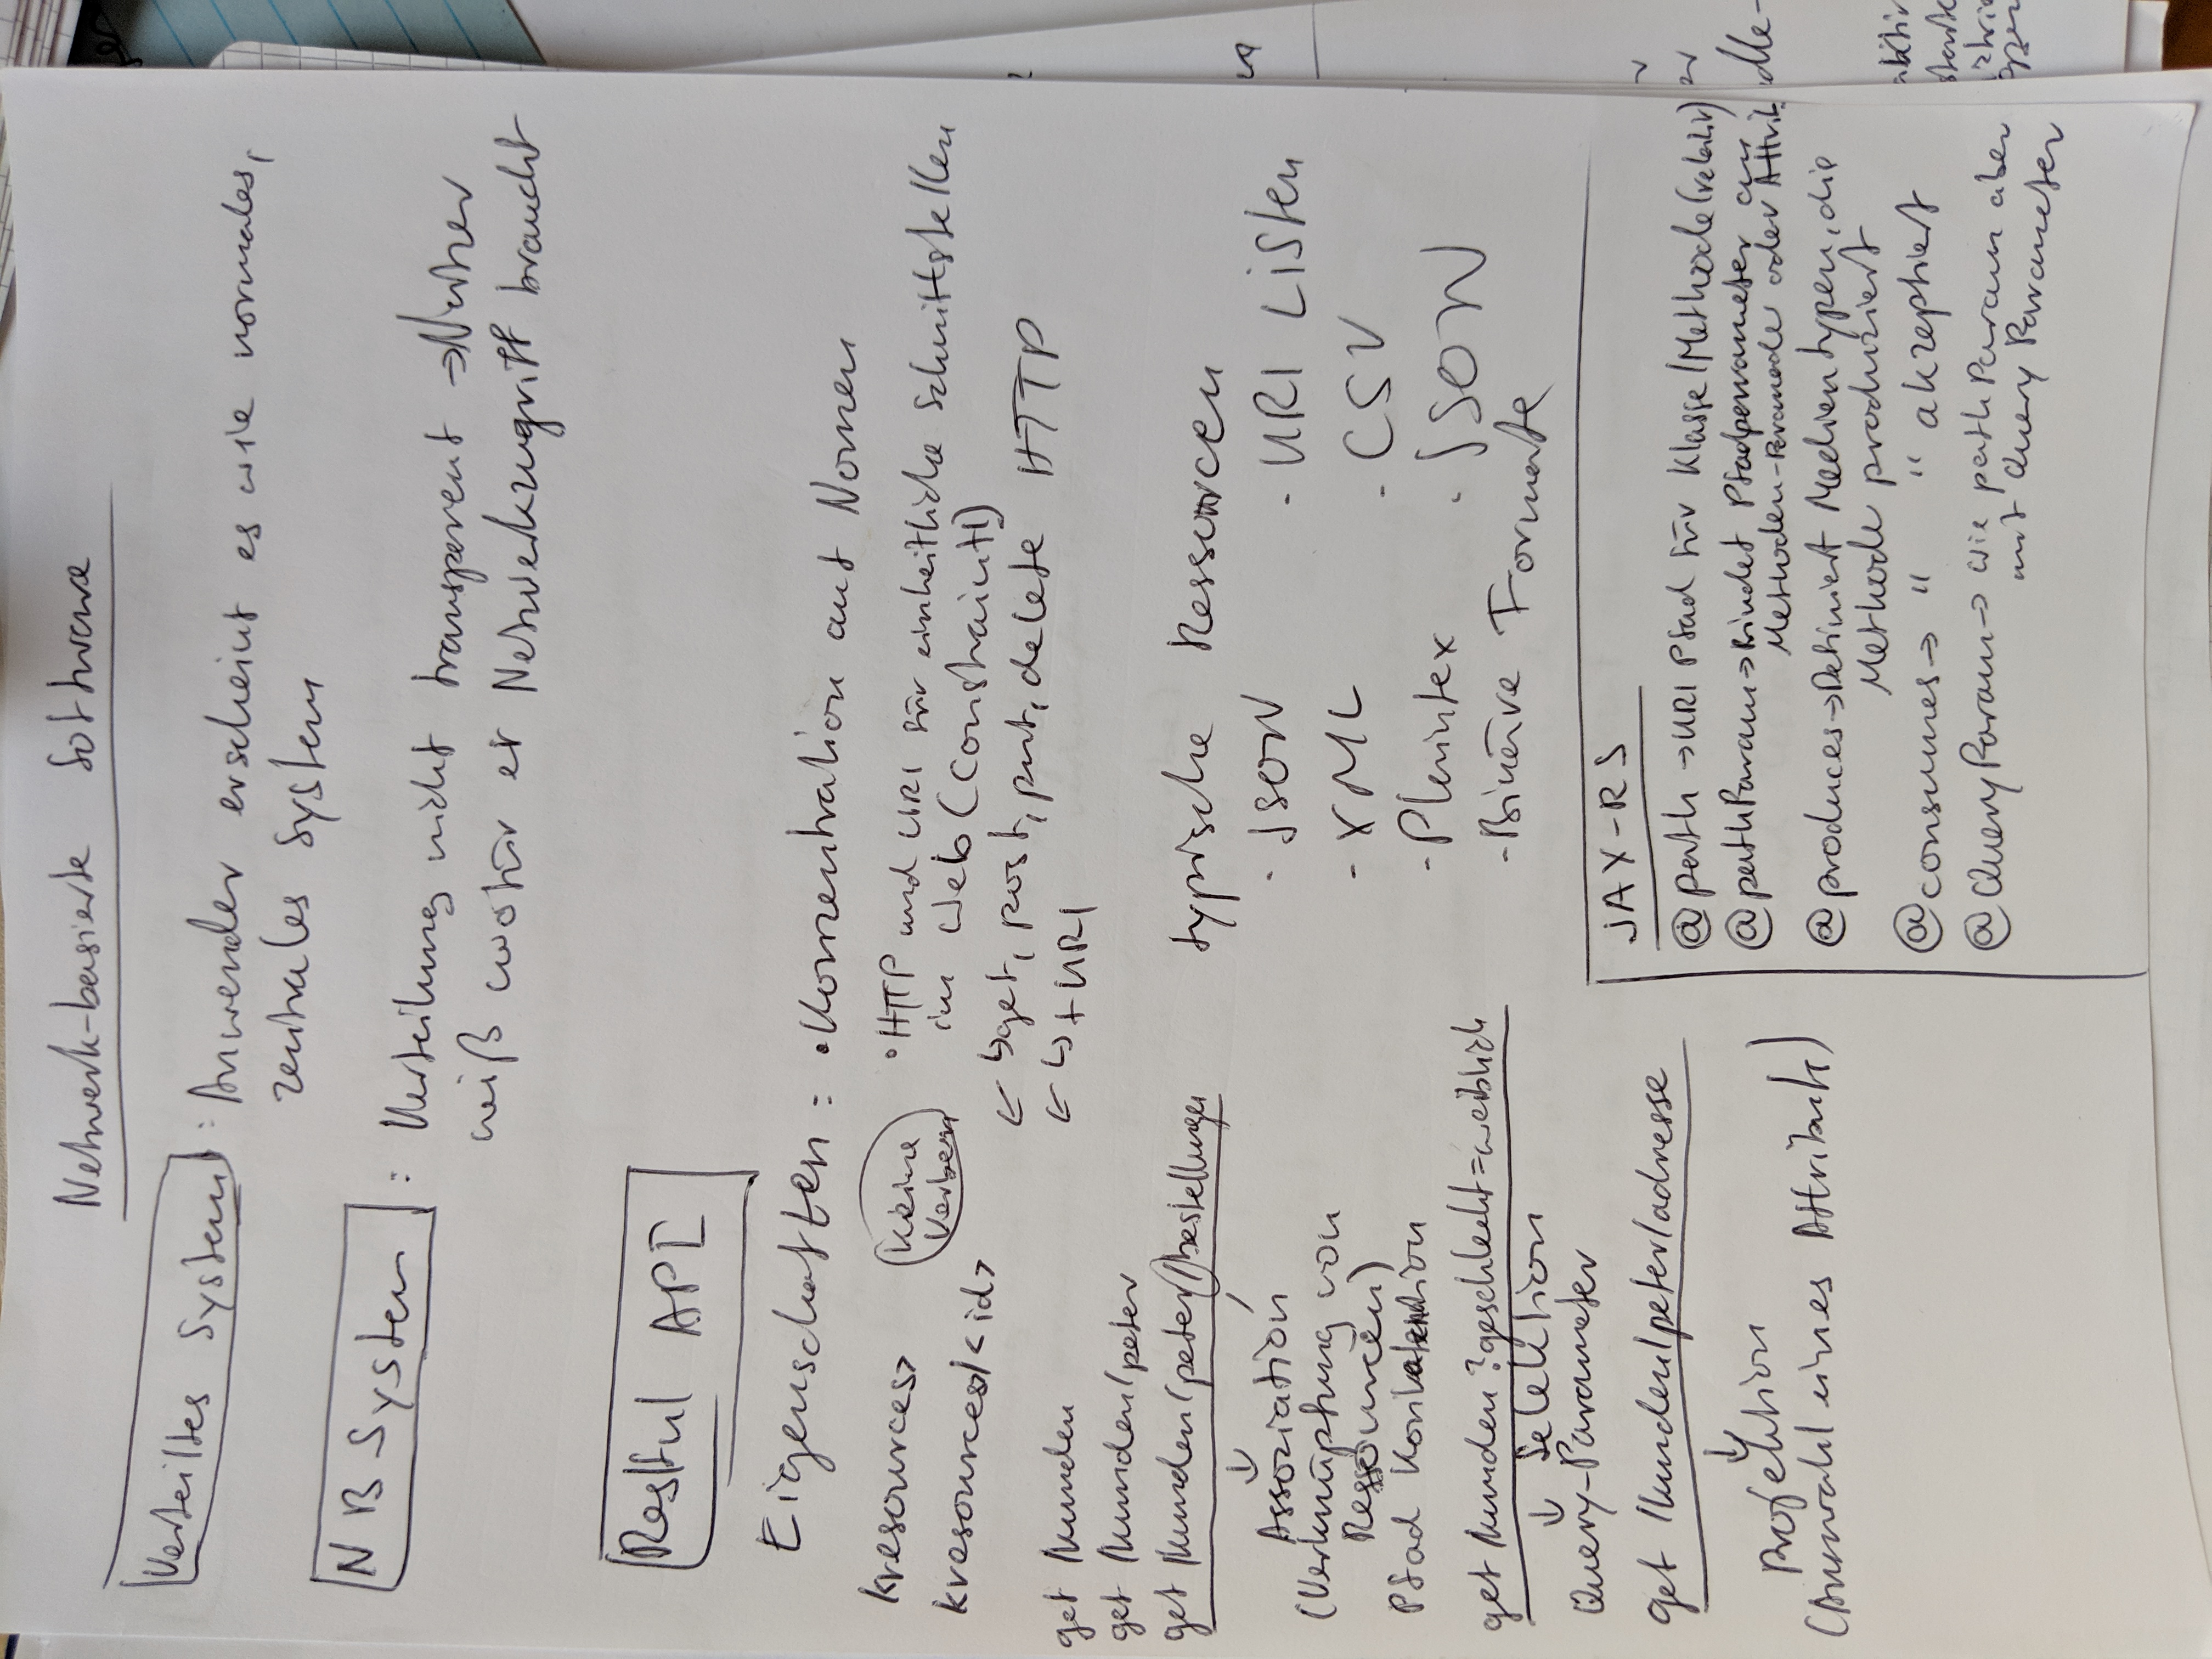 Netzwerk-basierte Software
Verteiltes System: Anwender erscheint es wie normales,
zentrales System
NB System: Verteilung nicht transparent → Nutzer
weiß wofür er Netzwerkzugriff braucht
Restful API
Eigenschaften: • Konzentration auf Nomen
Keine
Verben
• HTTP und URI für einheitliche Schnittstellen
im Web (Constraint!)
<resources>
<resources/<id>
← ↳ get, post, put, delete HTTP
← ↳ + URI
get Kunden
get Kunden/peter
get Kunden/peter/bestellungen
↓
Assoziation
(Verknüpfung von
Ressourcen)
Pfad
get Kunden?geschlecht=weiblich
↓ Selektion
Query-Parameter
get Kunden/peter/adresse
↓
Projektion
(Auswahl eines Attributs)
typische Ressourcen
- JSON
- XML
- Plaintex
- Binäre Formate
- URI Listen
- CSV
- JSON
JAX-RS
@path → URI Pfad für Klasse/Methode (relativ)
@pathParam → Bindet Pfadparameter an
Methoden-Parameter oder Attrib
@produces → Definiert Medientypen, die
Methode produziert
@consumes → " " akzeptiert
@QueryParam → wie pathParam aber
mit Query Parameter